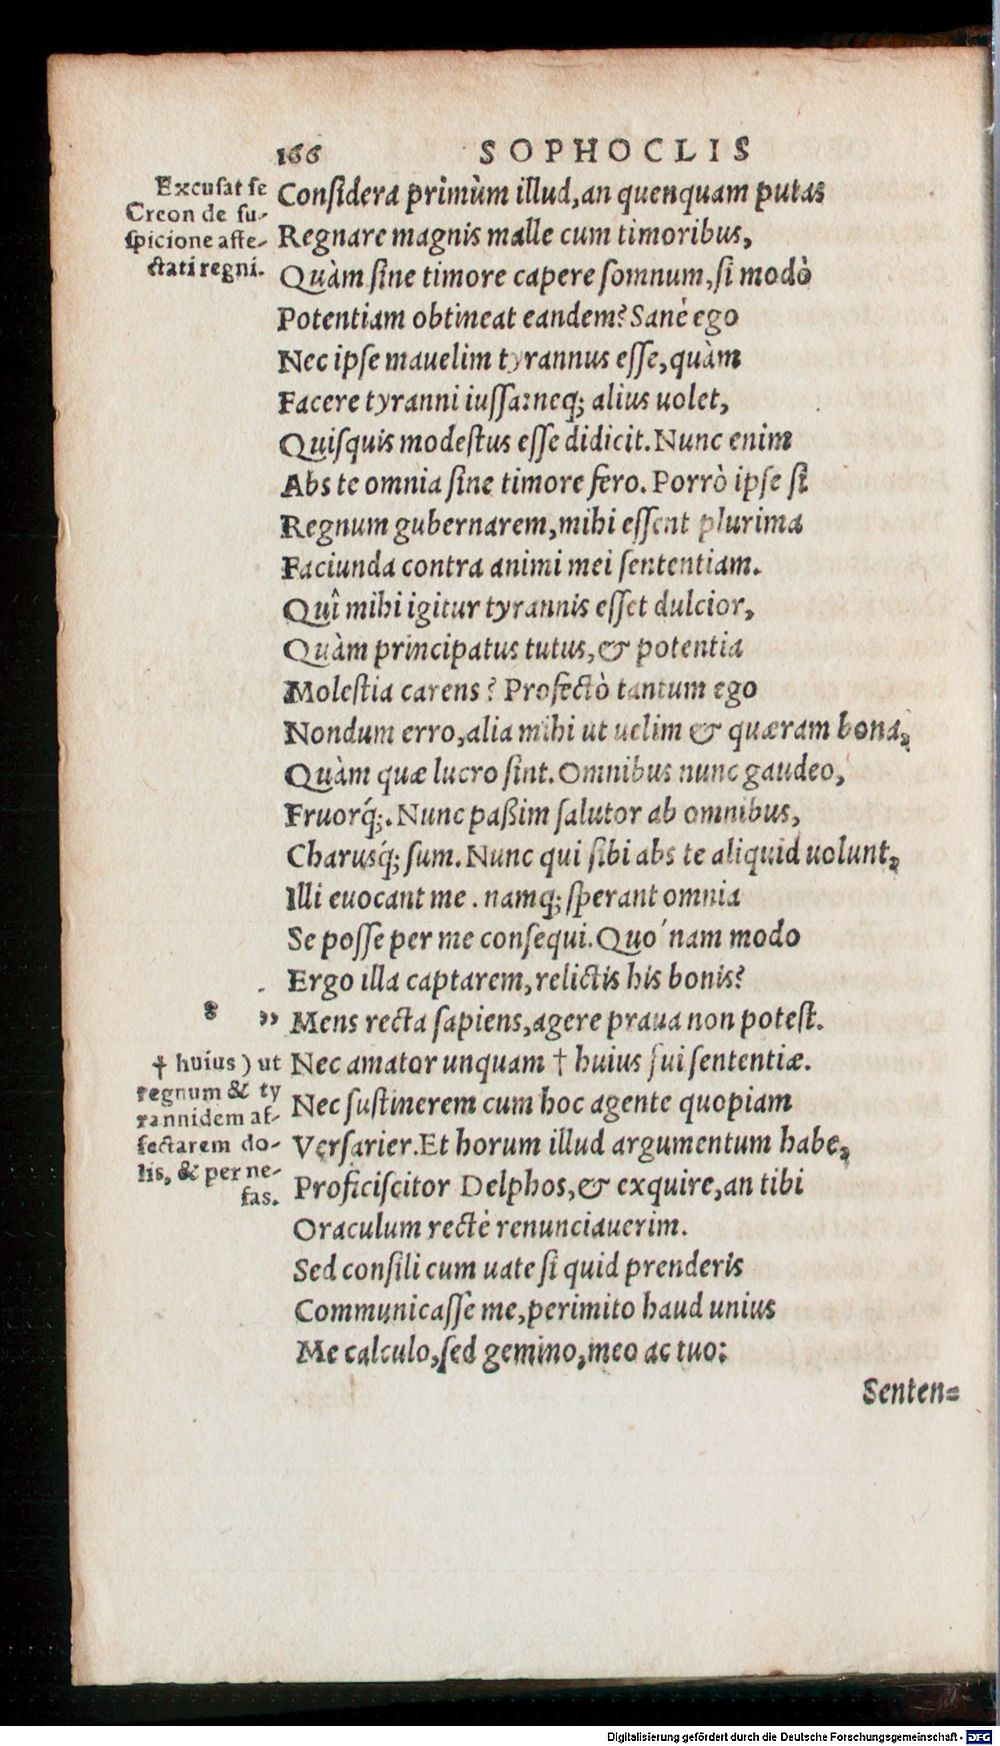 166 SOPHOCLIS
Excuſat ſe
Creon de ſu-
ſpicione affe-
ctati regni.
Conſidera primùm illud, an quenquam putas
Regnare magnis malle cum timoribus,
Quàm ſine timore capere ſomnum, ſi modò
Potentiam obtineat eandem? Sanè ego
Nec ipſe mauelim tyrannus eſſe, quàm
Facere tyranni iuſſa: neq; alius uolet,
Quiſquis modeſtus eſſe didicit. Nunc enim
Abs te omnia ſine timore fero. Porrò ipſe ſi
Regnum gubernarem, mihi eſſent plurima
Faciunda contra animi mei ſententiam.
Quî mihi igitur tyrannis eſſet dulcior,
Quàm principatus tutus, & potentia
Moleſtia carens? Profectò tantum ego
Nondum erro, alia mihi ut uelim & quæram bona,
Quàm quæ lucro ſint. Omnibus nunc gaudeo,
Fruorq́;. Nunc paßim ſalutor ab omnibus,
Charusq́; ſum. Nunc qui ſibi abs te aliquid uolunt,
Illi euocant me. namq; ſperant omnia
Se poſſe per me conſequi. Quo´nam modo
Ergo illa captarem, relictis his bonis?
„ Mens recta ſapiens, agere praua non poteſt.
Nec amator unquam † huius fui ſententiæ.
Nec ſuſtinerem cum hoc agente quopiam
Verſarier. Et horum illud argumentum habe,
Proficiſcitor Delphos, & exquire, an tibi
Oraculum rectè renunciauerim.
Sed conſili cum uate ſi quid prenderis
Communicaſſe me, perimito haud unius
Me calculo, ſed gemino, meo ac tuo:
† huius) ut
regnum & ty
rannidem af-
fectarem do-
lis, & per ne-
fas.
Senten=
Digitalisierung gefördert durch die Deutsche Forschungsgemeinschaft - DFG